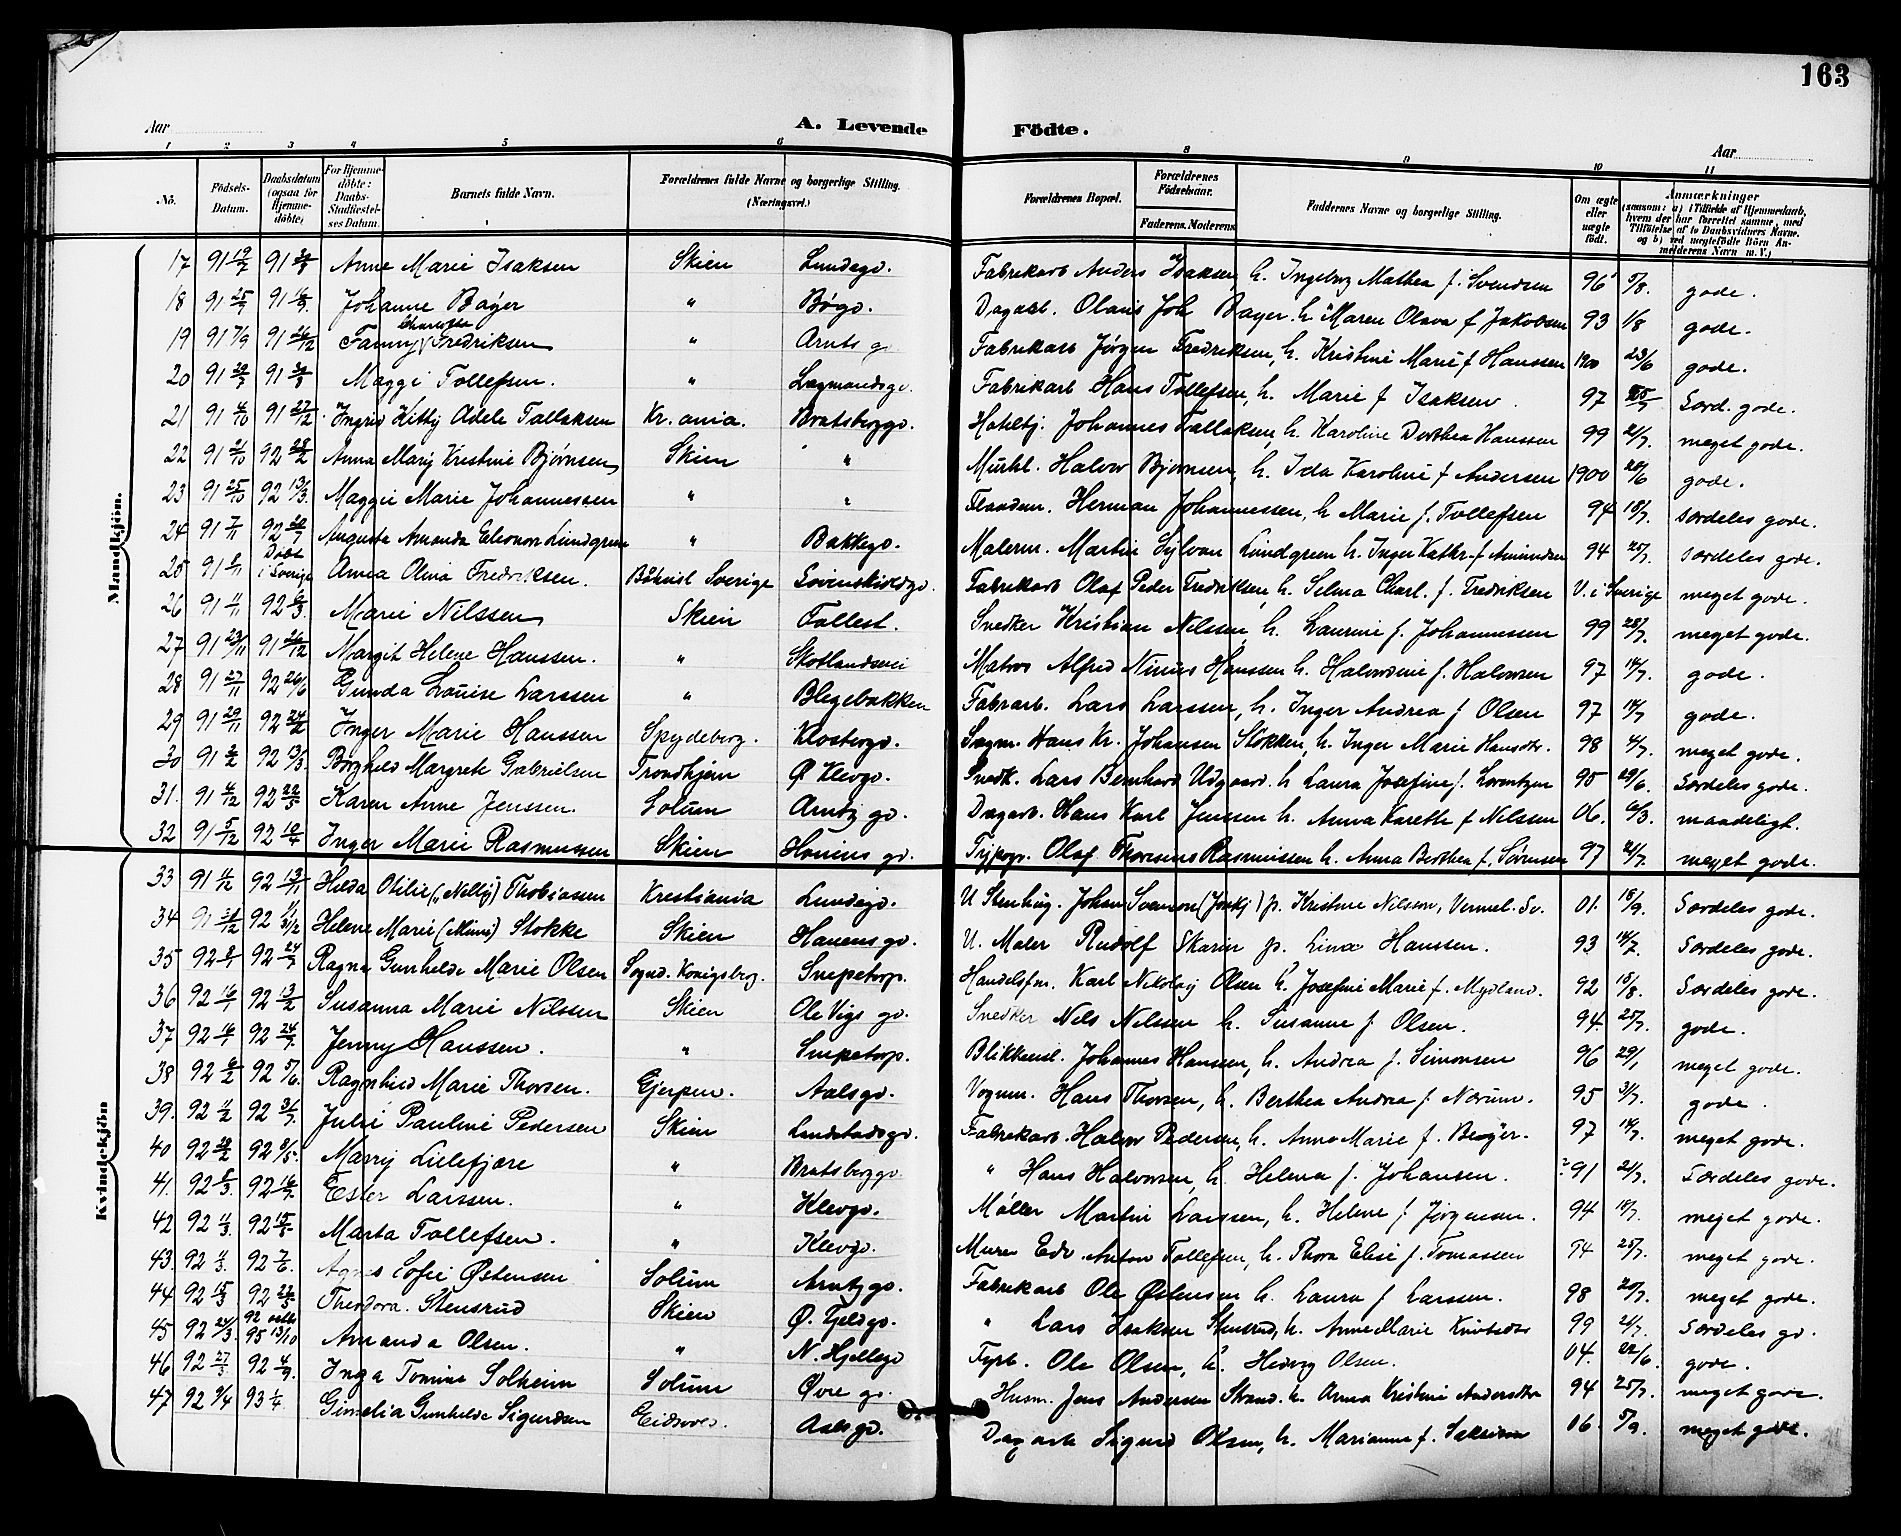 163
Aar
A. Levende Födte.
Aar
1 2 3 4 5 6 8 9 10 11
No.
Födsels-Datum.
Daabsdatum (ogsaa for Hjemme-döbte)
For Hjemme-döbte: Daabs-Stadfæstel-ses Datum
Barnets fulde Navn.
Forældrenes fulde Navne og borgerlige Stilling. (Næringsvei.)
Forældrenes Bopæl.
Forældrenes Födselsaar.
Faderens. Moderens.
Faddernes Navne og borgerlige Stilling.
Om ægte eller uægte födt.
Anmærkninger
(saasom: a) i Tilfælde af Hjemmedaab, hvem der har forrettet samme, med Tilföielse af to Daabsvidners Navne. og b) ved uægtefödte Börn An-melderens Navn m. V.)
Mandkjön.
17 91 19/7 91 Anne Marie Isaksen Skien Lundegd. Fabrikarb Anders Isaksen, h. Ingeborg Mathea f. Svendsen 96 5/8. gode.
18 91 25/7 91 Johanne Bayer " Bøgd. Dagarb. Olaus Joh Bayer. h. Maren Olava f Jakobsen 93 1/8 gode.
19 91 7/9 91 26/12 Fanny Charlotte Fredriksen " Arnts g Fabrikarb Jørgen Fredriksen, h. Kristine Marie f Hanssen 1900 23/6 gode.
20 91 91 Maggi Tollefsen. " Lagmandsgd. Fabrikarb Hans Tollefsen, h. Marie f Isaksen. 97 Særd. gode.
21 91 4/10 91 27/12 Ingrid Kitty Adele Tallaksen Kr.ania. Bratsberggd. Hotelbj. Johannes Tallaksen h. Karoline Dorthea Hanssen 99 21/7. meget gode.
22 91 21/10 92 28/2 Anna Mary Kristine Bjørnsen Skien " Murhl. Halvor Bjørnsen, h. Ida Karoline f Andersen 1900 20/6 gode.
23 91 25/10 92 13/3. Maggie Marie Johannessen " " Herman Johannessen, h Marie f. Tollefsen 94 18/7. særdeles gode.
24 91 7/11 92 Auguste Amanda Eleonora Lundgren " Bakkegd. Malerm. Martin Sylvan Lundgren h. Inger Kathr. f Amundsen 94 25/7. særdeles gode.
25 91 8/11 Døbt i Sverige Anna Olivia Fredriksen. Båhusl Sverige Fabrikarb Olaf Peder Fredriksen, h. Selma Charl. f. Fredriksen V. i Sverige meget gode.
26 91 11/11 92 6/3 Marie Nilssen Skien Follest. Snedker Kristian Nilssen, h. Laurine f. Johannessen 99 28/7. meget gode.
27 91 23/11 91 26/12 Margit Helene Hanssen. " Skotlandsvei Matros Alfred Ninius Hanssen h. Halvordine f. Halvorsen 97 14/7. gode.
28 91 27/11 92 26/6 Gunda Louise Larssen " Blegebakken Fabrarb. Lars Larssen, h. Inger Andrea f Olsen 97 14/7 gode.
29 91 29/11 92 24/2 Inger Marie Hanssen Spydeberg. Klostergd. Sagm. Hans Kr. Johansen Stokken, h. Inger Marie Hansdtr. 98 4/7. meget gode.
30 91 2/12 92 13/3. Borghild Margrete Gabrielsen Trondhjem Ø Klevgd. Snedk. Lars Bernhard Udgaard h Laura Josefine f. Lorentzen 95 29/6. Særdeles gode.
31. 91 4/12 92 22/5 Karen Anne Jenssen. Solum Arntz gd. Dagarb. Hans Karl Jenssen h. Anna Karethe f Nilssen 06. 6/3. maadeligt.
32 91 5/12 92 10/4 Inger Marie Rasmussen Skien Hauens gd. Typogr. Olaf Thoresius Rasmussen h. Anna Berthea f. Sørensen 97 21/7. meget gode.
Kvindekjön
33 91 11/12 92 13/11 Hilda Otilie („Nelly") Thobiassen Kristiania Lundegd. U Stenhug. Johan Svenson (Jonkj) p. Kristine Nilsson, Verml. Sv. 01. 18/9. Særdeles gode.
34 91 92 Helene Marie (Mimi) Stokke Skien Hauens gd. U. Maler Rudolf Skarin p. Lina Hanssen. 93 14/7. Særdeles gode.
35 92 8/1 92 24/7 Ragna Gunhilde Marie Olsen Sognd. Kongsberg. Snipetorp. Handelsfm. Karl Nikolay Olsen h. Josefine Marie f. Mydland. 92 18/8. Særdeles gode.
36 92 16/1 92 13/2 Susanna Marie Nilssen Skien Ole Vigs gd. Snedker Nels Nilssen h. Susanne f Olsen. 94. 25/7. gode.
37 92 16/1 92 24/7. Jenny Hanssen. " Snipetorp. Blikkensl. Johannes Hanssen, h. Andrea f. Simonsen 96 29/1 meget gode.
38 92 6/2 92 5/6. Ragnhild Marie Thorsen. Gjerpen. Aalsgd. Vognm. Hans Thorsen, h. Berthea Andrea f. Nærum. 95 31/7. gode.
39. 92 11/2 92 31/7. Julie Pauline Pedersen Skien Lundstadsgd. Fabrikarb. Halvor Pedersen, h. Anne Marie f. Bergør. 97 14/7. meget gode.
40 92 28/2 92 8/5. Marry Lillefjære " Bratsberggd. " Hans Halvorsen, h. Helma f. Johansen. ? 91 21/7. Særdeles gode.
41. 92 8/3. 92 16/7. Ester Larssen. " Klevgd. Møller Martin Larssen, h. Helene f Jørgensen. 94 18/7. meget gode.
42 92 11/3 92 15/5 Marta Tollefsen. " Klevgd. Murer Edv. Anton Tollefsen, h. Thora Elise f. Tomassen 94 25/7. meget gode.
43. 92 11/3. 92 7/6. Agnes Sofie Østensen Solum Arntz gd. Fabrikarb Ole Østensen h. Laura f Larssen. 98 20/7. meget gode.
44 92 15/3 92 26/5 Theodora. Stensrud Skien Ø. Fjeldgd. " Lars Isaksen Stensrud, h. Anne Marie Knutsdtr 99 21/7. Særdeles gd.
45 92 24/3 92 95 13/10 Amanda Olsen. " N. Hjellegd Fyrb. Ole Olsen, h. Hedvig Olsen. 04. 22/6. gode.
46 92 27/3 92 4/9. Inga Tomine Solheim Solum Øvre gd. Husm. Jens Andersen Strand. h. Anna Kristine Andersdtr 94 25/7. meget gode.
47 92 9/4 93 1/4. Gunhilde Sigurdsen Eidsvold. Aalsgd. Dagarb Sigurd Olsen, h. Marianne f. 06. 5/9. meget gode.